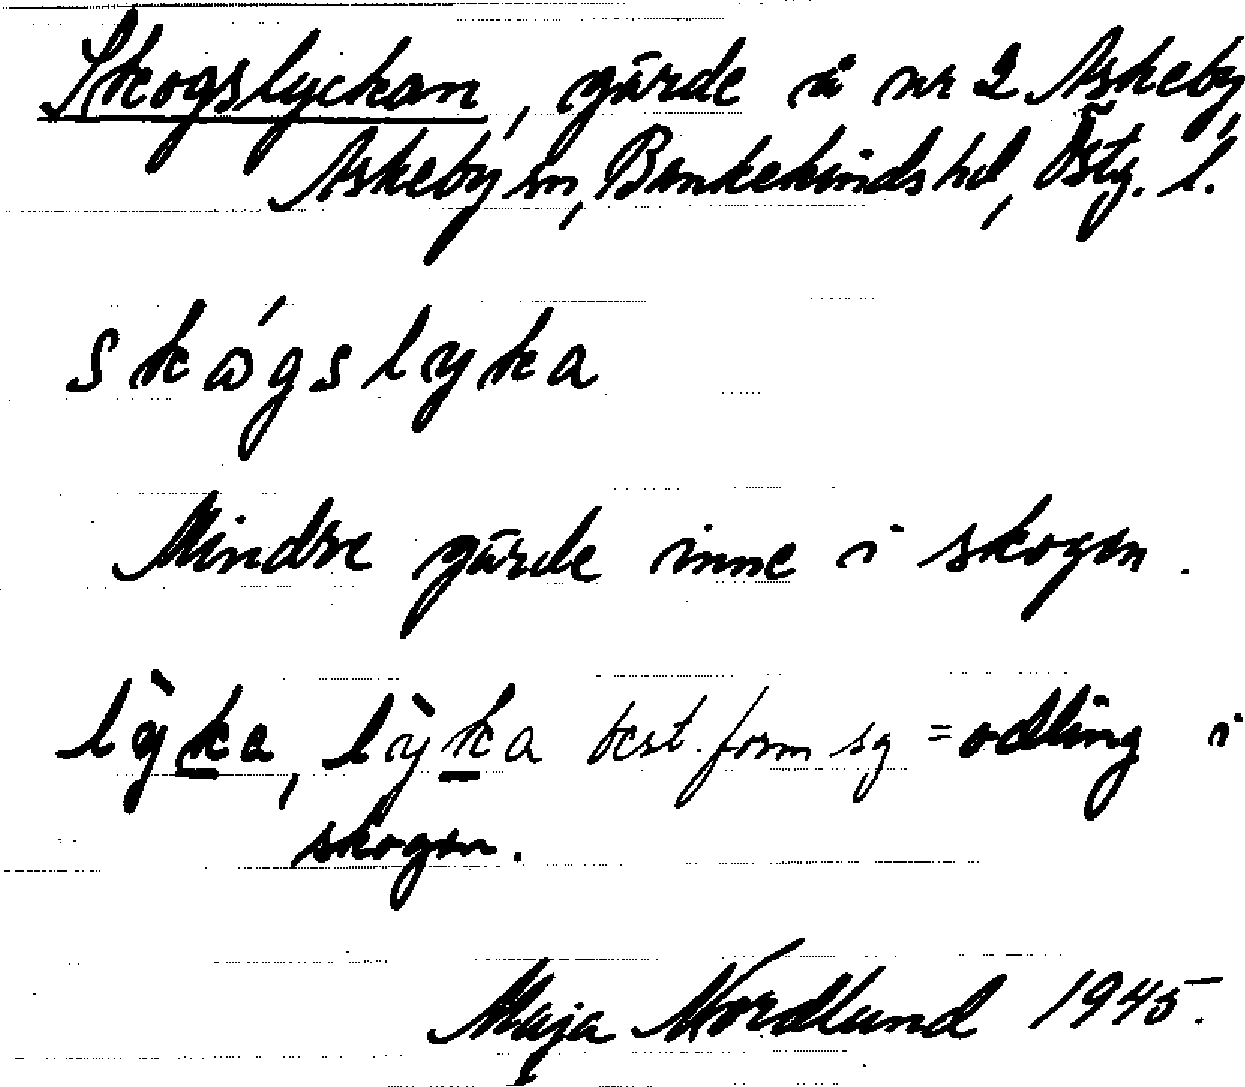 Skogslyckan, gärde å nr 2 Askeby,
Askeby sn, Bankekinds hd, Östg. l.
skógslyka
Mindre gärde inne i skogen.
lỳka, lỳka best. form sg = odling i
skogen.
Maja Nordlund 1945.